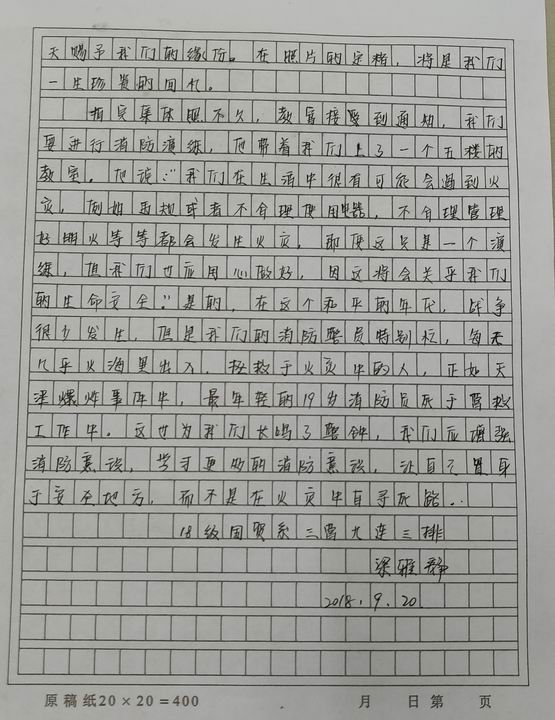 天赐予我们的缘份。在照片的定格，将是我们
一生珍贵的回忆。
拍完集体照不久，教官接受到通知，我们
要进行消防演练，他带着我们上了一个五楼的
教室。他说："我们在生活中很有可能会遇到火
灾，例如违规或者不合理使用电器，不合理管理
好明火等等都会发生火灾。即使这只是一个演
练，但我们也应用心做好，因这将会关乎我们
的生命安全"是的，在这个和平的年代，战争
很少发生，但是我们的消防警员特别忙，每天
几乎火海里出入，拯救于火灾中的人，正如天
津爆炸事件中，最年轻的19岁消防员死于营救
工作中。这也为我们长鸣了警钟，我们应增强
消防意识，学习更好的消防意识，让自己置身
于安全地方，而不是在火灾中自寻死路..
18级国贸系三营九连三排
梁雅静
2018.9.20
原稿纸20×20=400 月 日第 页